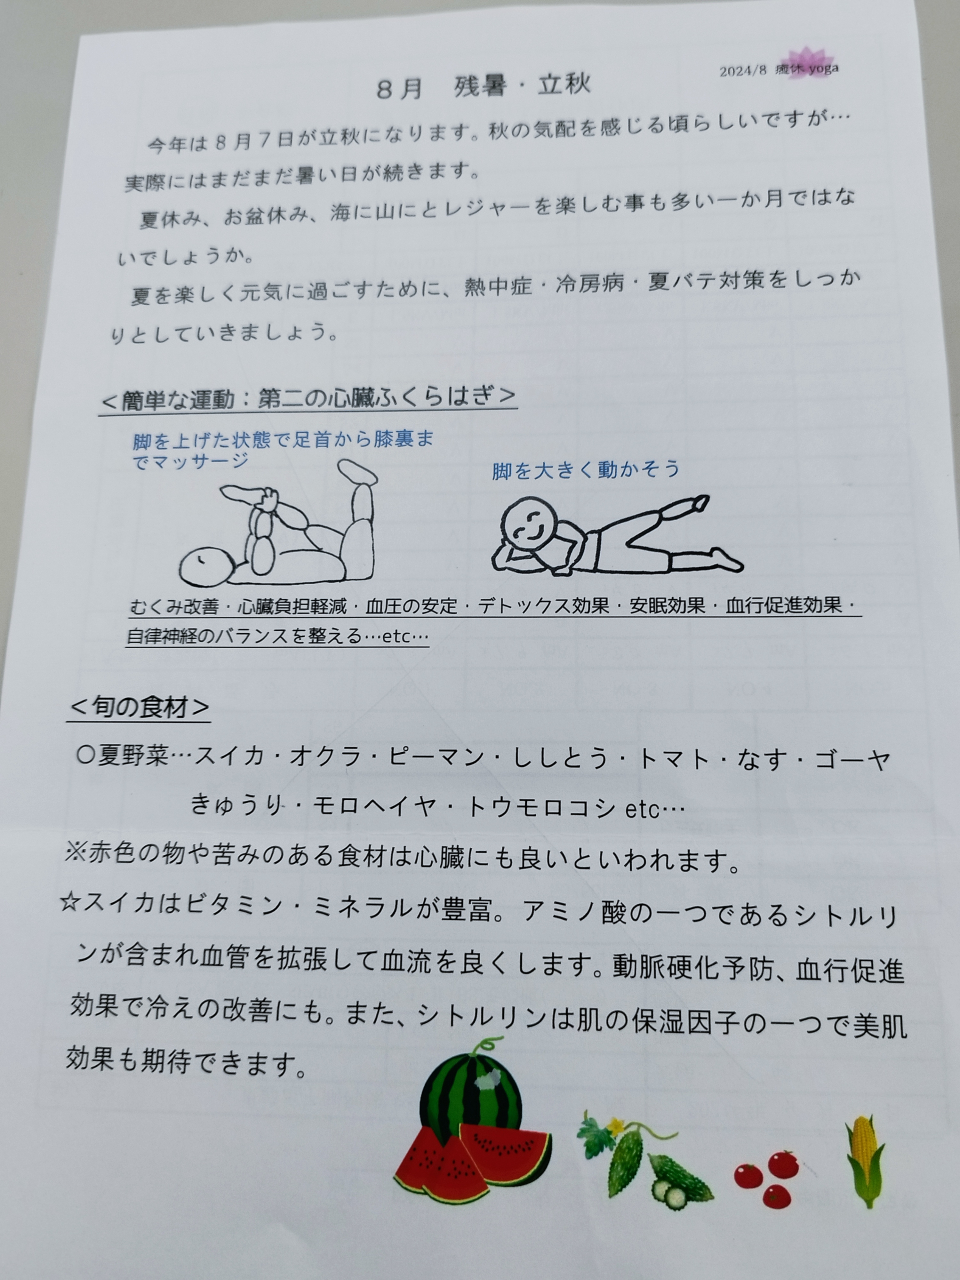 2024/8 癒休 yoga
8月　残暑・立秋
今年は８月７日が立秋になります。秋の気配を感じる頃らしいですが…
実際にはまだまだ暑い日が続きます。
夏休み、お盆休み、海に山にとレジャーを楽しむ事も多い一か月ではな
いでしょうか。
夏を楽しく元気に過ごすために、熱中症・冷房病・夏バテ対策をしっか
りとしていきましょう。
＜簡単な運動：第二の心臓ふくらはぎ＞
脚を上げた状態で足首から膝裏ま
でマッサージ
脚を大きく動かそう
むくみ改善・心臓負担軽減・血圧の安定・デトックス効果・安眠効果・血行促進効果・
自律神経のバランスを整える…etc…
＜旬の食材＞
○夏野菜…スイカ・オクラ・ピーマン・ししとう・トマト・なす・ゴーヤ
きゅうり・モロヘイヤ・トウモロコシ etc…
※赤色の物や苦みのある食材は心臓にも良いといわれます。
☆スイカはビタミン・ミネラルが豊富。アミノ酸の一つであるシトルリ
ンが含まれ血管を拡張して血流を良くします。動脈硬化予防、血行促進
効果で冷えの改善にも。また、シトルリンは肌の保湿因子の一つで美肌
効果も期待できます。